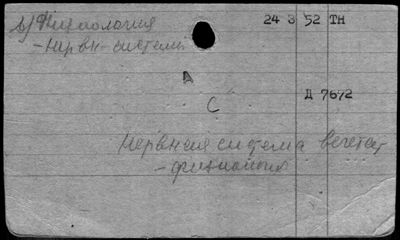 в) Физиология 24 3 52 ТН
- нервн-системы
А
С
Д 7672
Нервная система вегетат
- физиология